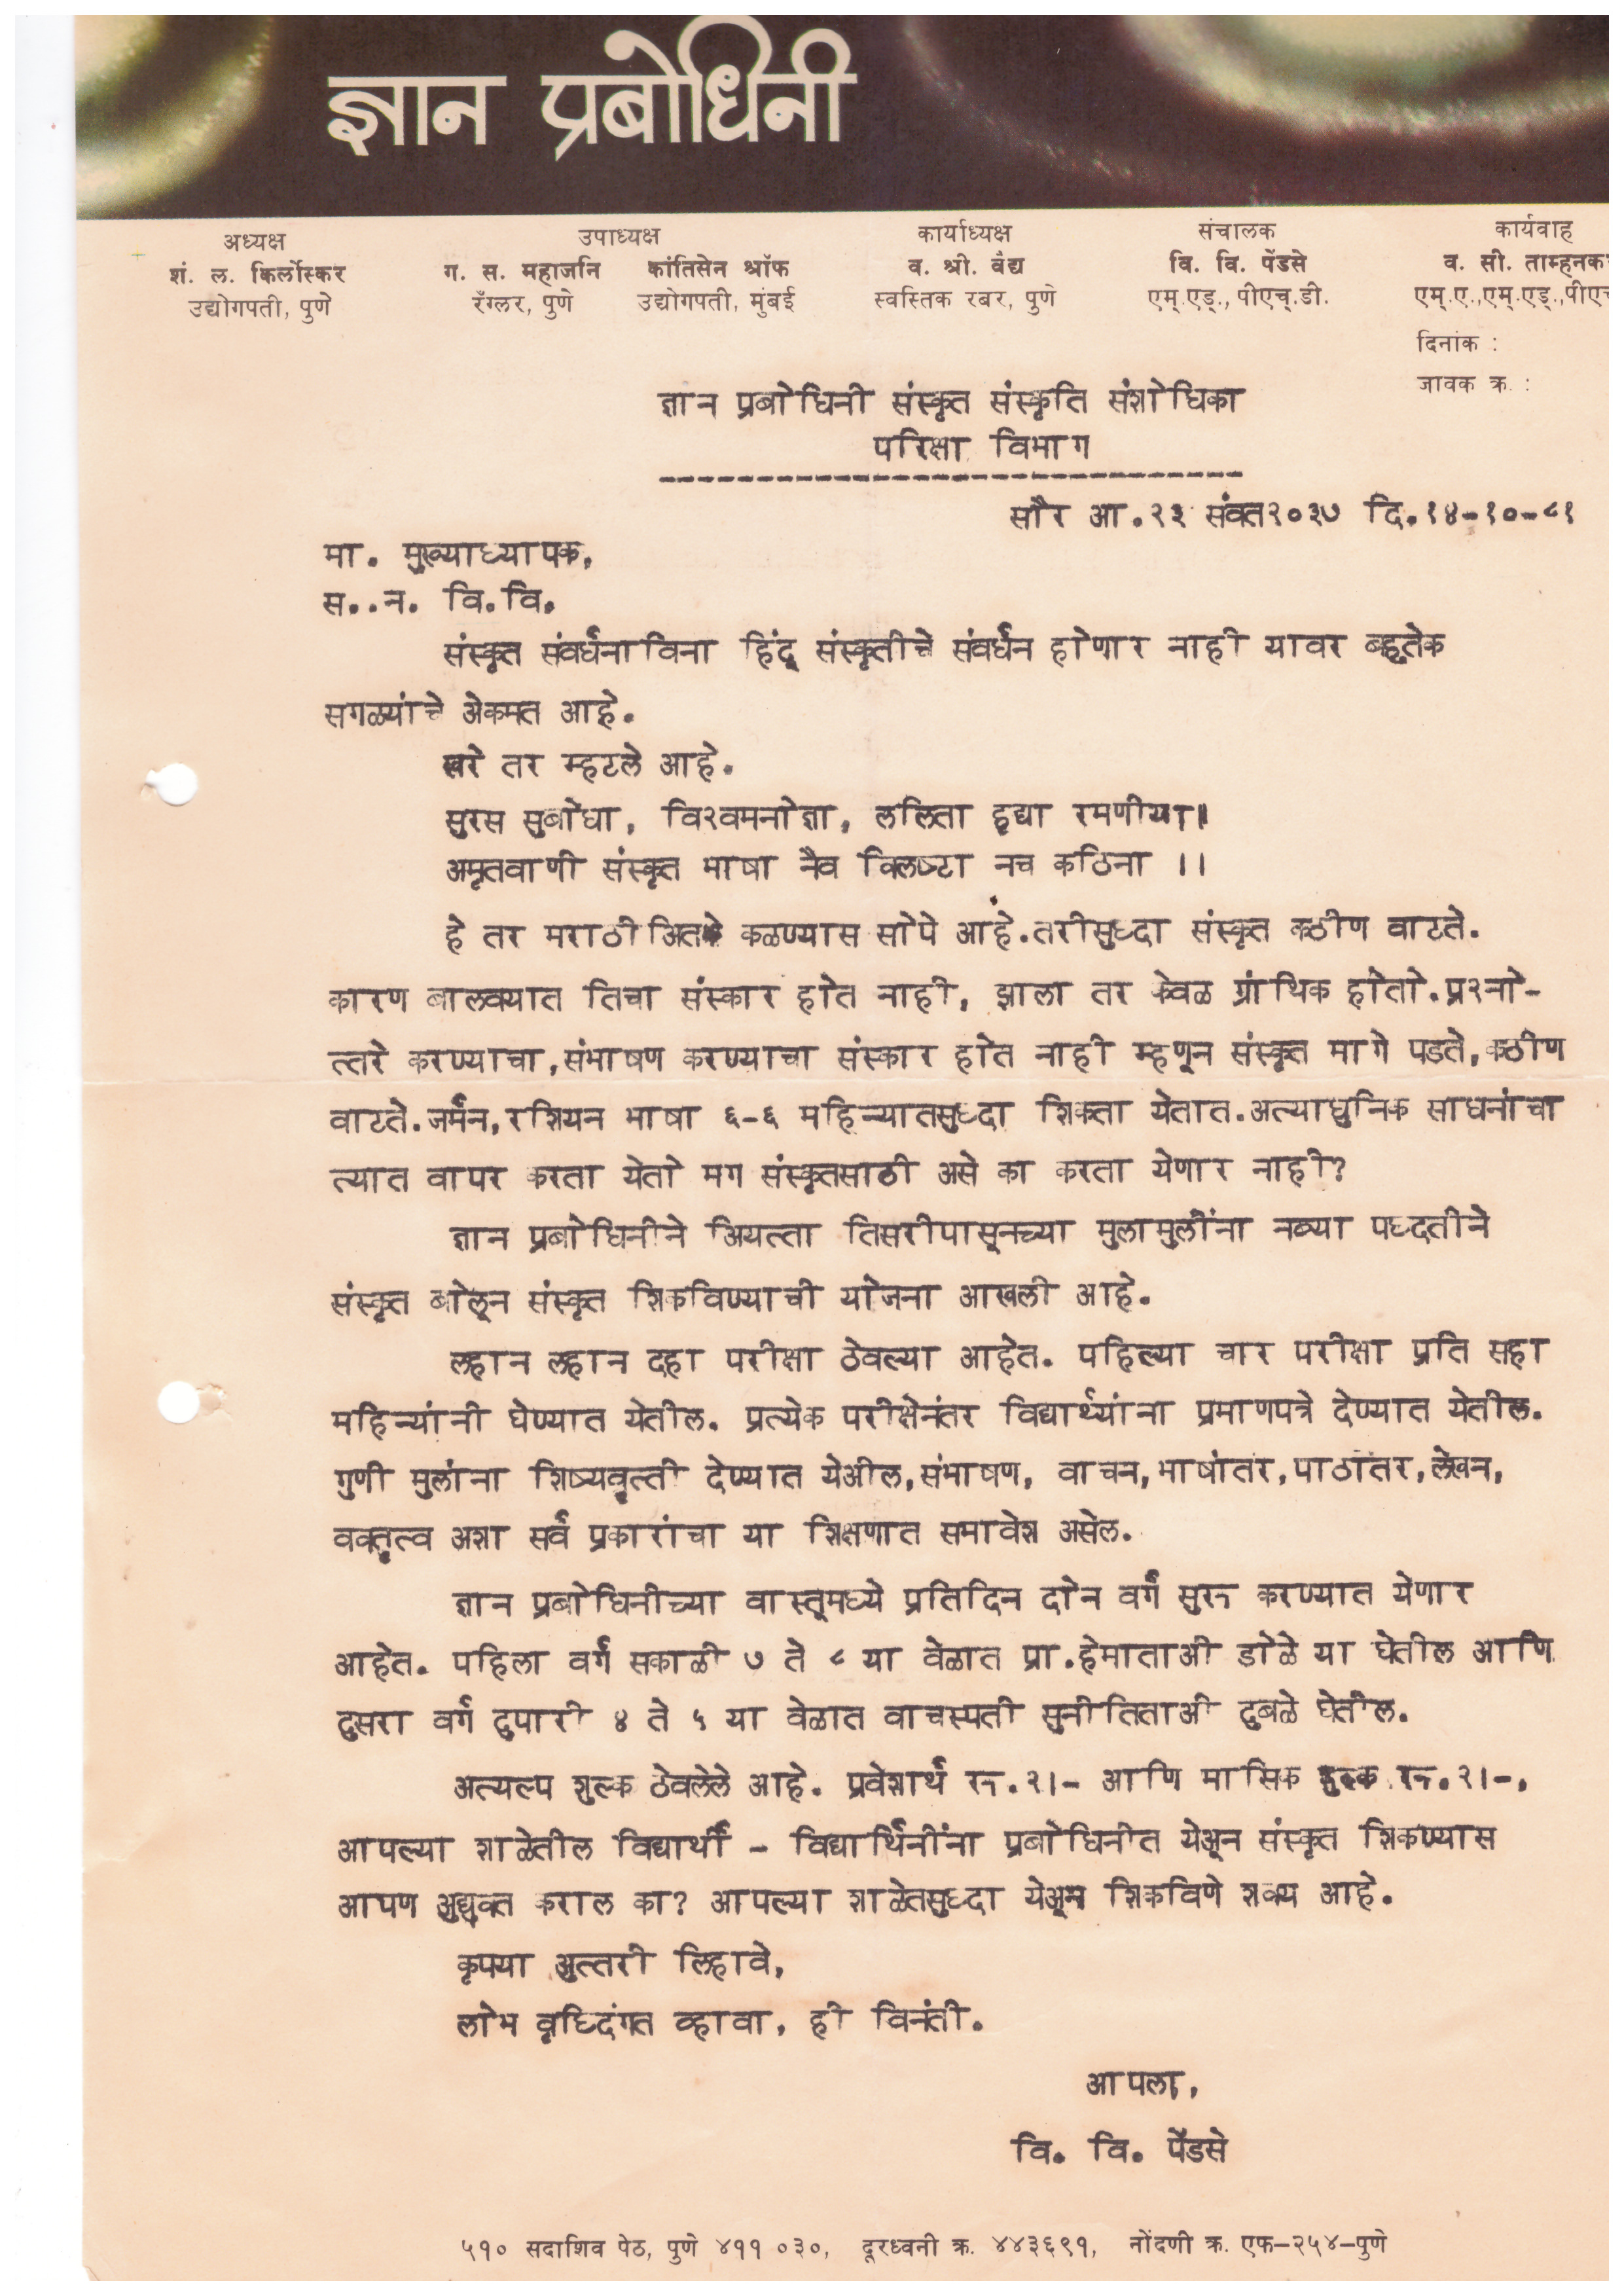 ज्ञान प्रबोधिनी
अध्यक्ष उपाध्यक्ष कार्याध्यक्ष संचालक कार्यवाह
शं. ल. किर्लोस्कर ग. स. महाजनि कांतिसेन श्रॉफ व. श्री. वैद्य वि. वि. पेंडसे व. सी. ताम्हनकर
उद्योगपती, पुणे रँग्लर, पुणे उद्योगपती, मुंबई स्वस्तिक रबर, पुणे एम्.एड्., पीएच्.डी. एम्.ए.,एम्.एड्.,पीएच
दिनांक :
जावक क्र. :
ज्ञान प्रबोधिनी संस्कृत संस्कृति संशोधिका
परिक्षा विभाग
सौर आ.२३ संवत२०३७ दि.१४-१०-८१
मा. मुख्याध्यापक,
स..न. वि.वि.
संस्कृत संवर्धनाविना हिंदू संस्कृतीचे संवर्धन होणार नाही यावर बहुतेक
सगळयांचे अेकमत आहे.
खरे तर म्हटले आहे.
सुरस सुबोधा, विश्वमनोज्ञा, ललिता हृद्या रमणीया॥
अमृतवाणी संस्कृत भाषा नैव क्लिष्टा नच कठिना ।।
हे तर मराठी अितके कळण्यास सोपे आहे.तरीसुध्दा संस्कृत कठीण वाटते.
कारण बालवयात तिचा संस्कार होत नाही, झाला तर केवळ ग्रांथिक होतो.प्रश्नो-
त्तरे करण्याचा,संभाषण करण्याचा संस्कार होत नाही म्हणून संस्कृत मागे पडते,कठीण
वाटते.जर्मन,रशियन भाषा ६-६ महिन्यातसुध्दा शिकता येतात.अत्याधुनिक साधनांचा
त्यात वापर करता येतो मग संस्कृतसाठी असे का करता येणार नाही?
ज्ञान प्रबोधिनीने अियत्ता तिसरीपासूनच्या मुलामुलींना नव्या पध्दतीने
संस्कृत बोलून संस्कृत शिकविण्याची योजना आखली आहे.
लहान लहान दहा परीक्षा ठेवल्या आहेत. पहिल्या चार परीक्षा प्रति सहा
महिन्यांनी घेण्यात येतील. प्रत्येक परीक्षेनंतर विद्यार्थ्यांना प्रमाणपत्रे देण्यात येतील.
गुणी मुलांना शिष्यवृत्ती देण्यात येअील,संभाषण, वाचन,भाषांतर,पाठांतर,लेखन,
वक्तृत्व अशा सर्व प्रकारांचा या शिक्षणात समावेश असेल.
ज्ञान प्रबोधिनीच्या वास्तूमध्ये प्रतिदिन दोन वर्ग सुरू करण्यात येणार
आहेत. पहिला वर्ग सकाळी ७ ते ८ या वेळात प्रा.हेमाताअी डोळे या घेतील आणि
दुसरा वर्ग दुपारी ४ ते ५ या वेळात वाचस्पती सुनीतिताअी दुबळे घेतील.
अत्यल्प शुल्क ठेवलेले आहे. प्रवेशार्थ रू.२।- आणि मासिक शुल्क रू.२।-,
आपल्या शाळेतील विद्यार्थी - विद्यार्थिनींना प्रबोधिनीत येअून संस्कृत शिकण्यास
आपण अुद्युक्त कराल का? आपल्या शाळेतसुध्दा येअून शिकविणे शक्य आहे.
कृपया अुत्तरी लिहावे,
लोभ वृध्दिंगत व्हावा, ही विनंती.
आपला,
वि. वि. पेंडसे
५१० सदाशिव पेठ, पुणे ४११ ०३०, दूरध्वनी क्र. ४४३६९१, नोंदणी क्र. एफ-२५४-पुणे